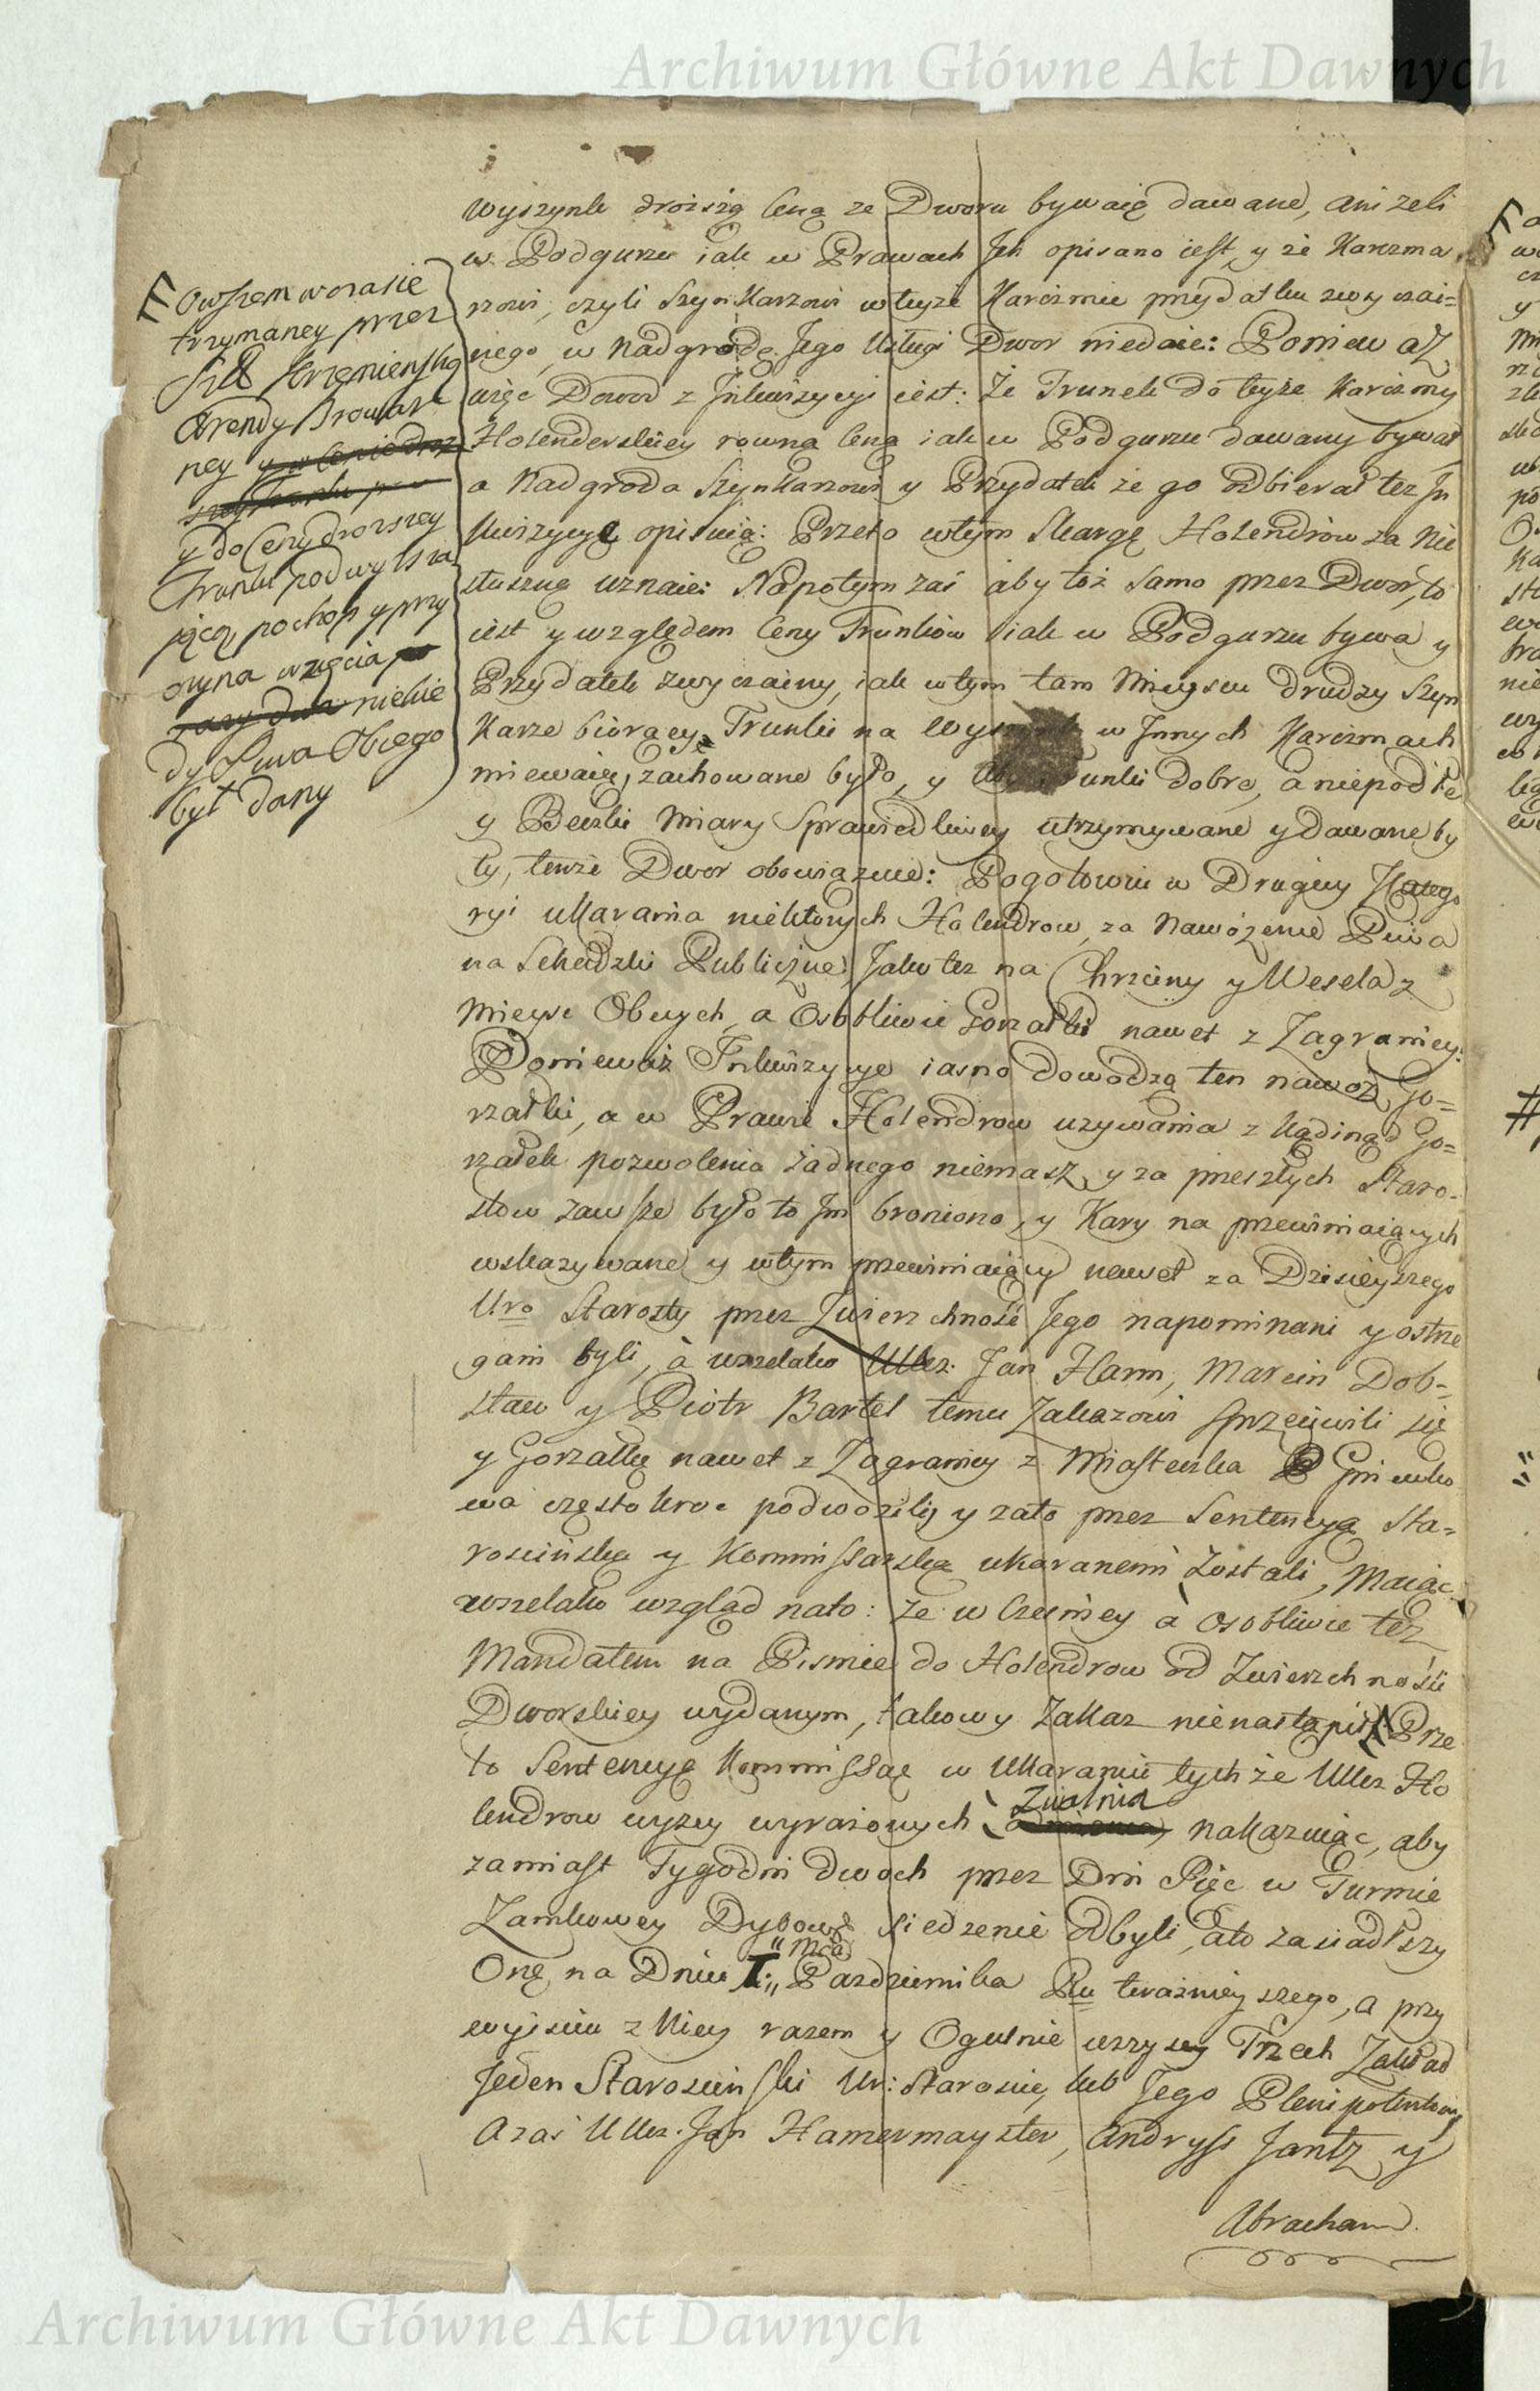 Archiwum Główne Akt Dawnych
wyszynk droższą Ceną ze Dworu bywaią dawane, aniżeli
w Podgurzu iak w Prawach Jch opisano iest, y że Karczma
rzowi, czyli Szynkarzowi wteyże Karczmie przydatku zwyczai=
nego, w Nadgrodę Jego Usługi Dwor niedaie: Poniewaz
więc Dowod z Jnkwizycyi iest: Że Trunek do teyże Karczmy
Holenderskiey rowną Ceną iak w Podgurzu dawany bywał
a Nadgroda Szynkarzowi y Przydatek że go odbierał tez Jn
kwizycye opisuią: Przeto wtym Skargę Holendrow za Nie
słuszną uznaie: Napotym zaś aby toż samo przez Dwor, to
iest y względem Ceny Trunkow iak w Podgurzu bywa y
Przydatek zwyczainy, iak wtym tam Mieyscu drudzy Szyn
Karze biorący Trunki na w Jnnych Karczmach
miewaią, zachowane było, y dobre, a niepodłe
y Beczki Miary Sprawiedliwey utrzymywane y dawane by
ły, tenże Dwor obowiązuie: Pogotowiu w Drugiey Katego
ryi ukarania niektorych Holendrow, za Nawożenie Piwa
na Schadzki Publiczne, Jako tez na Chrzciny y Wesela z
Mieysc Obcych, a Osobliwie Gorzałki nawet z Zagranicy:
Ponieważ Jnkwizycye iasno dowodzą ten nawoz Go=
rzałki, a w Prawie Holendrow uzywania z kądinąd Go=
rzałek pozwolenia żadnego niemasz, y za przeszłych Staro=
stow zawsze było to Jm broniono, y Kary na przewiniaiących
wskazywane y wtym przewiniaiący nawet za Dzisieyszego
Uro Starosty przez Zwierzchność Jego napominani y ostrze
gani byli, à wszelako Ucz. Jan Harm, Marcin Dob=
sław y Piotr Bartel temu Zakazowi sprzeciwili się
y Gorzałkę nawet z Zagranicy z Miasteczka Gniewko
wa częstokroc podwozili, y zato przez Sentencyą Sta=
roscińską y Kommissarską ukaranemi zostali, Maiąc
wszelako wzgląd nato: że w Czesniey à Osobliwie tez
Mandatem na Pismie do Holendrow od Zwierzchności
Dworskiey wydanym, takowy Zakaz nienastąpił, Prze
to Sentencyę Kommissae w Ukaraniu tychże Ucz Ho
lendrow wyzey wyrażonych Zwalnia nakazuiąc, aby
zamiast Tygodni dwoch przez Dni Pięc w Turmie
Zamkowey Dybows siedzenie odbyli, ato zasiadłszy
Onę, na Dniu 1: "ma" Pazdziernika Ru teraźnieyszego, a przy
wyisciu z Niey razem y Ogulnie wszyscy Trzech Zakład
Jeden Staroscinski Ur: Staroscie, lub Jego Plenipotentowi
a zaś Ucz. Jan Hamermayster, Andryss Jantz y
Abracham
Owszem wczasie
trzymaney przez
Krzemienską
Arendy Browar
ney
y do Ceny droższey
trunku podwyższa
jącą, pochop y przy
czyna wzięcia
niekie
dy Piwa Obcego
był dany
Archiwum Główne Akt Dawnych